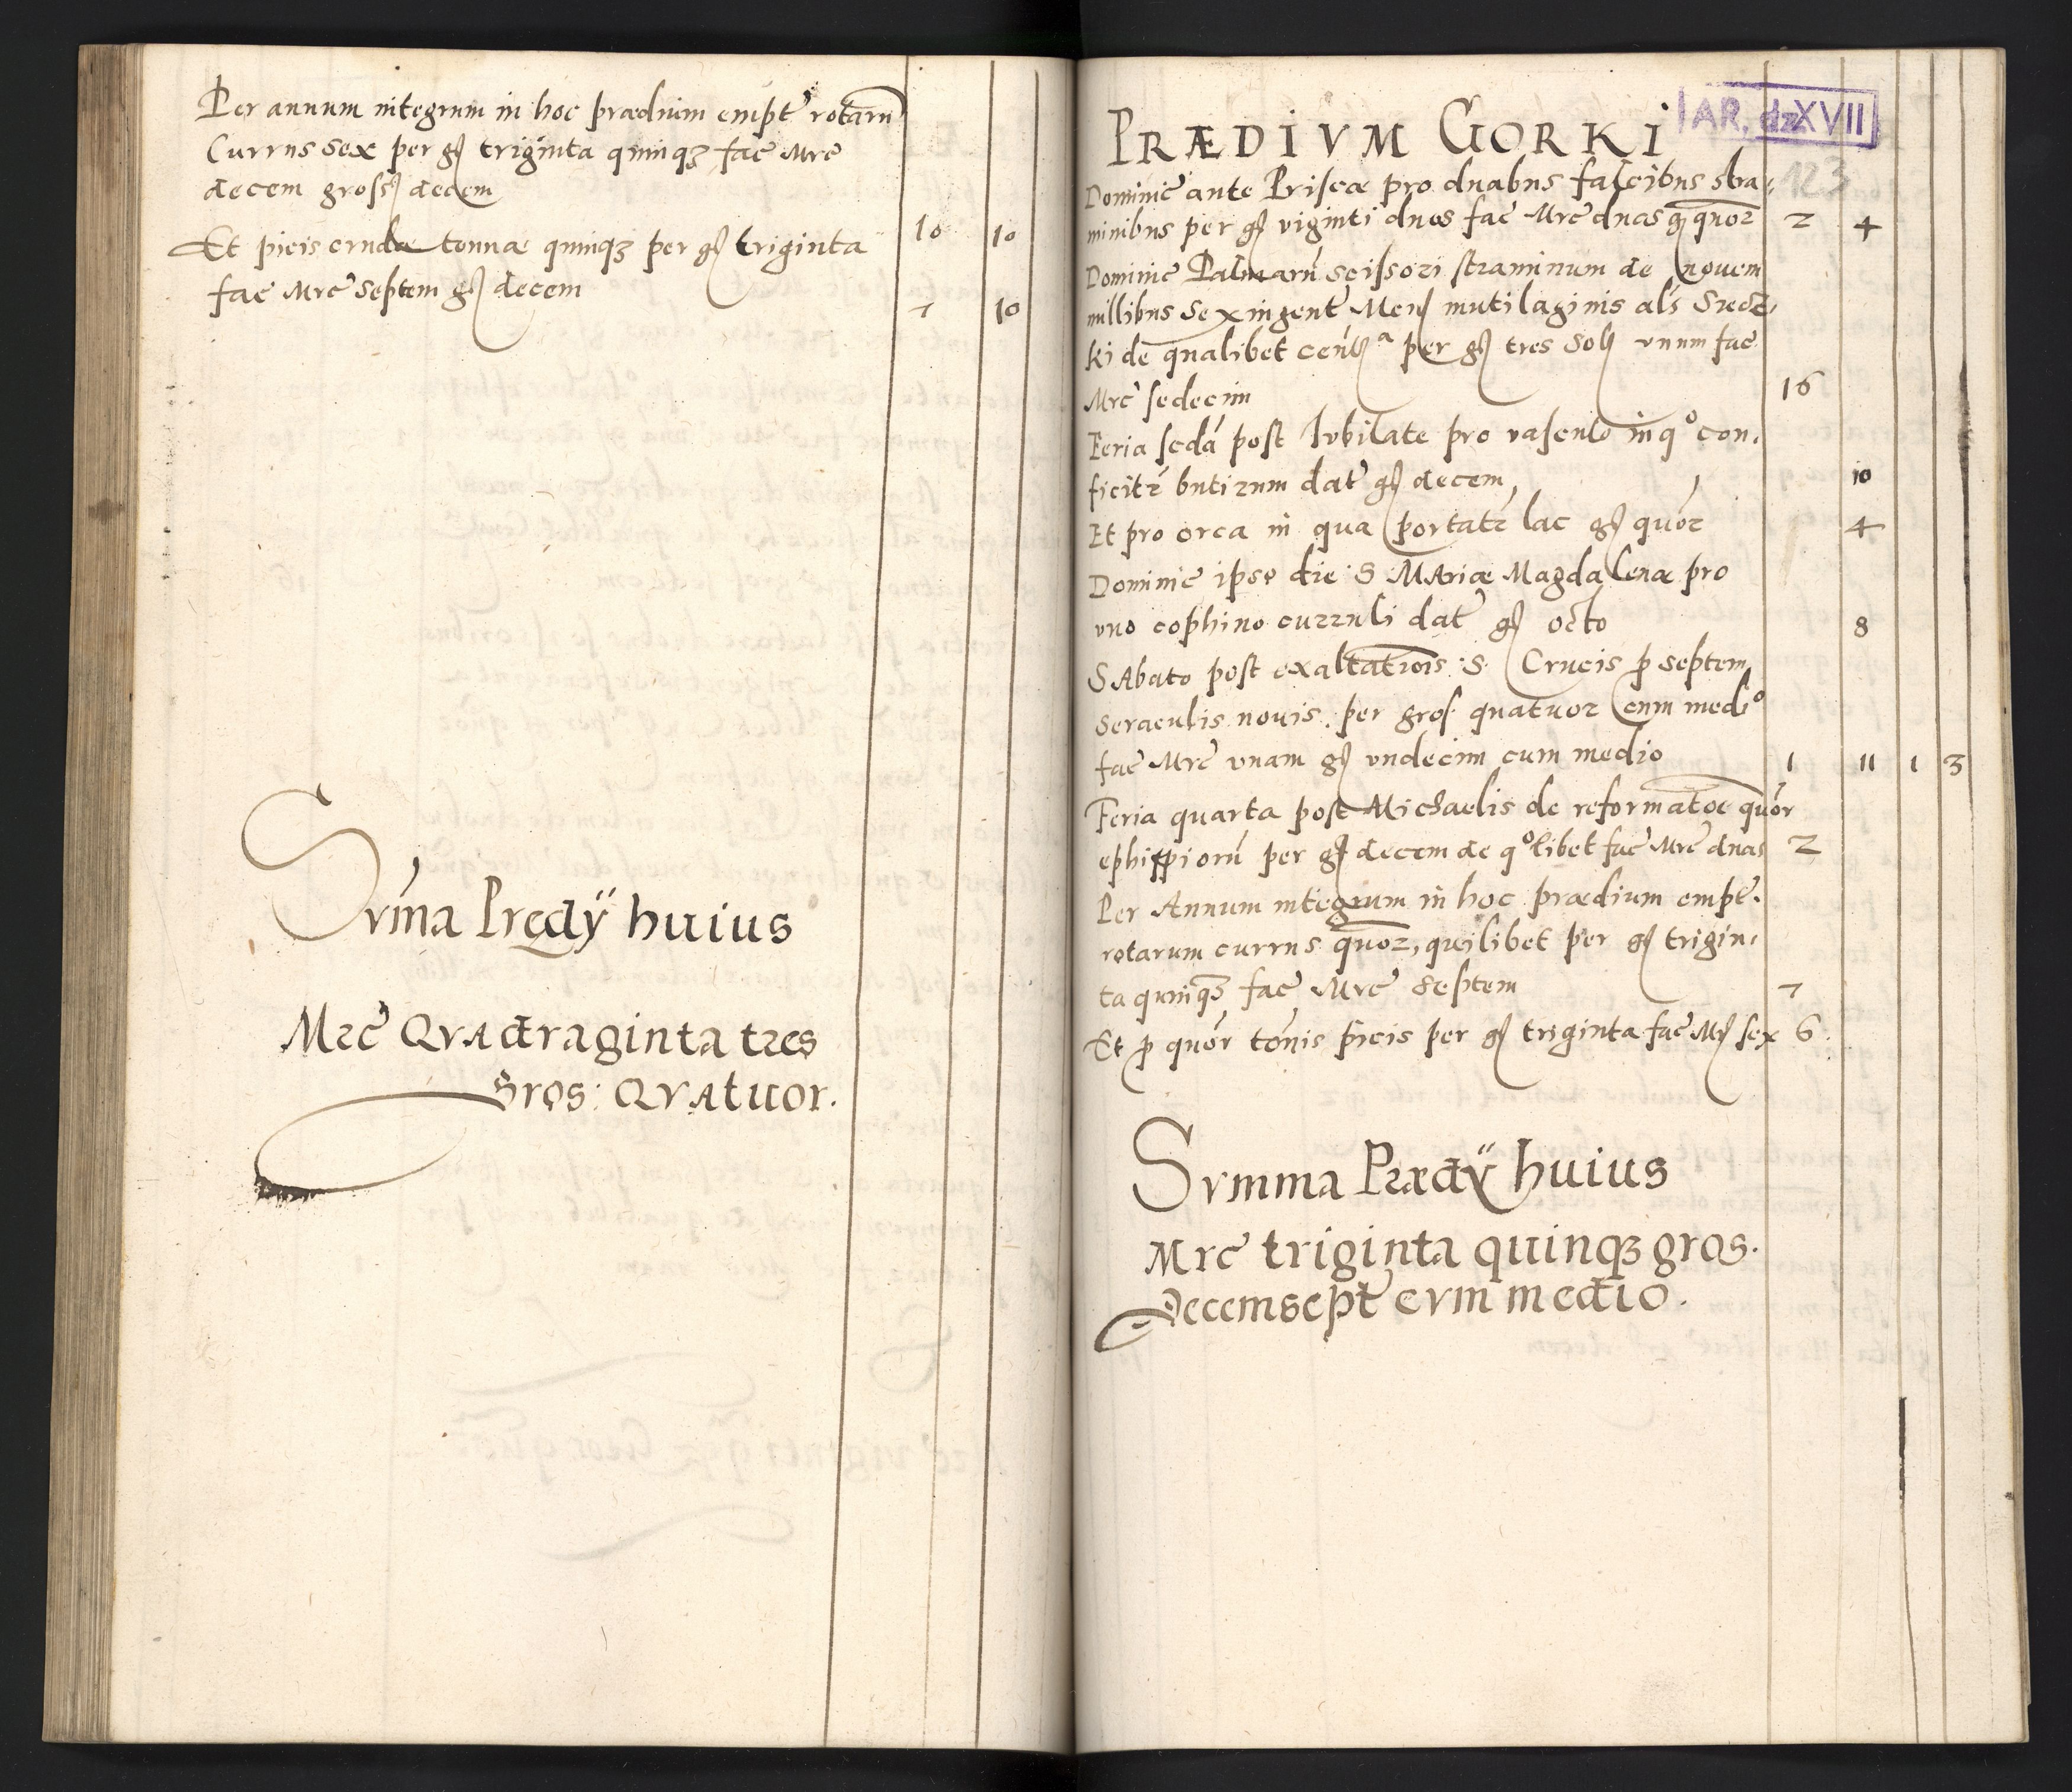 Per annum integrum in hoc prædium empt rotarū
Currus sex per gſ triginta quinqꝫ fac Mrc
decem grosſ decem 10 10
Et picis crudæ tonnæ quinqꝫ per gſ triginta
fac Mrc septem gſ decem 7 10
Svm̄a Prędÿ huius
Mrc Qvadraginta tres
Gros: Qvatuor.
IAR. dz XVII
PRÆDIVM GORKI
123
Dominic ante Priscæ pro duabus falcibus stra-
minibus per gſ viginti duos fac Mrc duas gſ quor 2 4
Dominic Palmarū scissori straminum de novem
millibus sexingent Menſ mutilaginis als Srecz-
ki de qualibet per gſ tres Solſ vnum fac
Mrc sedecim 16
Feria scdá post Ivbilate pro vasculo in qº con-
ficitr butirum dat gſ decem 10
Et pro orca in qua portatr lac gſ quór 4
Dominic ipso die S Mariæ Magdalenæ pro
vno cophino curruli dat gſ octo 8
Sabato post exaltatiois S. Crucis p septem
seraculis novis per gros quatuor cum medio
fac Mrc vnam gſ vndecim cum medio 1 11 1 3
Feria quarta post Michaelis de reformatoe quór
ephippiorū per gſ decem de qºlibet fac Mrc duas 2
Per Annum integrum in hoc prædium empt.
rotarum currus quor, quilibet per gſ trigin-
ta quinqꝫ fac Mrc septem 7
Et p quór tónis picis per gſ triginta fac Mſ sex 6
Svmma Prædÿ huius
Mrc triginta quinqꝫ gros.
Decemsept cvm medio.